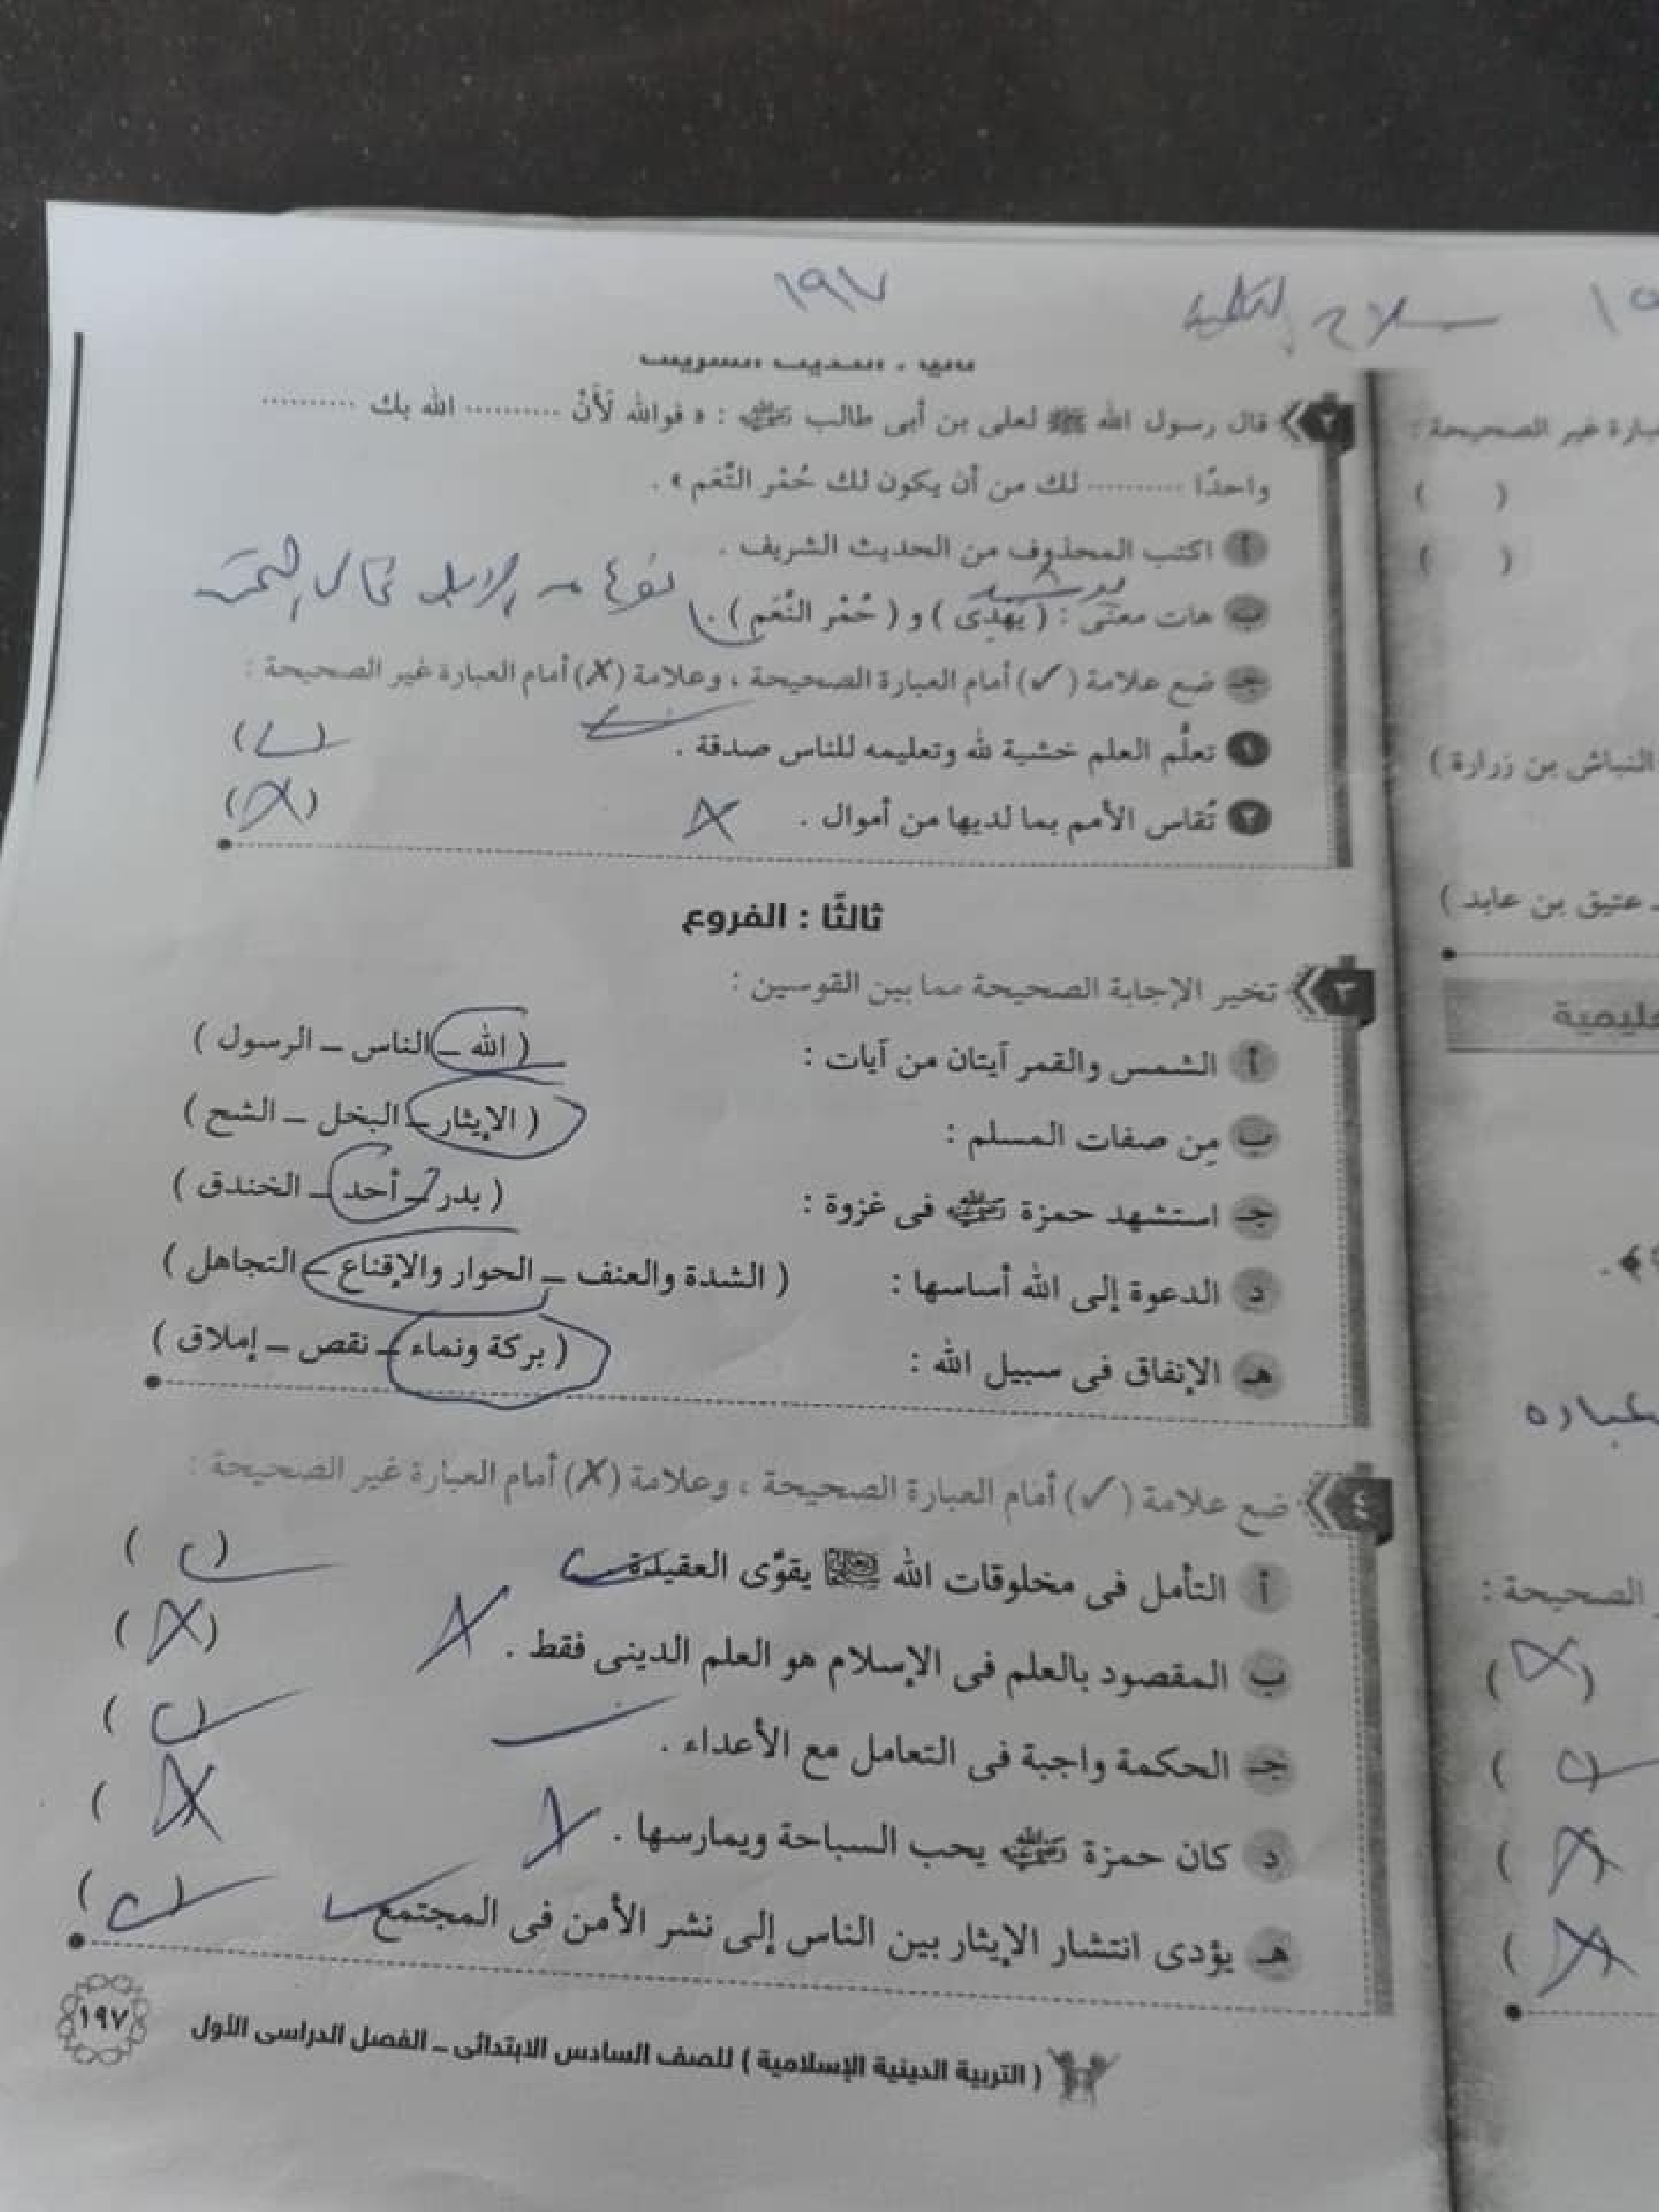 ١٩٧
سلاح التلميذ
ثانيا : الحديث الشريف
٢ قال رسول الله ﷺ لعلى بن أبى طالب رضي الله عنه : « فوالله لَأَنْ .......... الله بك ..........
واحدًا .......... لك من أن يكون لك حُمْر النَّعَم » .
أ اكتب المحذوف من الحديث الشريف .
يرشد
ب هات معنى : ( يَهْدِى ) و ( حُمْر النَّعَم ) . نوع من الإبل
جـ ضع علامة (✓) أمام العبارة الصحيحة ، وعلامة (✗) أمام العبارة غير الصحيحة :
١ تعلُّم العلم خشية لله وتعليمه للناس صدقة . ✓ (✓)
٢ تُقاس الأمم بما لديها من أموال . ✗ (✗)
ثالثًا : الفروع
٣ تخير الإجابة الصحيحة مما بين القوسين :
أ الشمس والقمر آيتان من آيات : ( الله ــ الناس ــ الرسول )
ب مِن صفات المسلم : ( الإيثار ــ البخل ــ الشح )
جـ استشهد حمزة رضي الله عنه فى غزوة : ( بدر ــ أحد ــ الخندق )
د الدعوة إلى الله أساسها : ( الشدة والعنف ــ الحوار والإقناع ــ التجاهل )
هـ الإنفاق فى سبيل الله : ( بركة ونماء ــ نقص ــ إملاق )
٤ ضع علامة (✓) أمام العبارة الصحيحة ، وعلامة (✗) أمام العبارة غير الصحيحة :
أ التأمل فى مخلوقات الله يقوِّى العقيدة ✓ (✓)
ب المقصود بالعلم فى الإسلام هو العلم الدينى فقط . ✗ (✗)
جـ الحكمة واجبة فى التعامل مع الأعداء . ✓ (✓)
د كان حمزة رضي الله عنه يحب السباحة ويمارسها . ✗ (✗)
هـ يؤدى انتشار الإيثار بين الناس إلى نشر الأمن فى المجتمع ✓ (✓)
( التربية الدينية الإسلامية ) للصف السادس الابتدائى ــ الفصل الدراسى الأول
١٩٧
عبارة غير الصحيحة :
( )
( )
النباش بن زرارة )
ــ عتيق بن عابد )
عباره
الصحيحة :
(✗)
(✓)
(✗)
(✗)